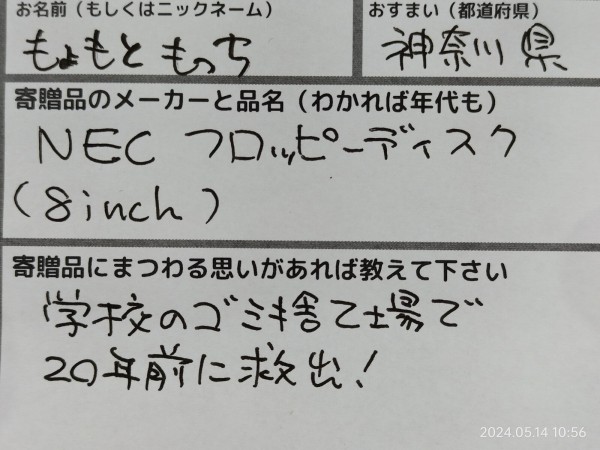 お名前（もしくはニックネーム）
もょもと もっち
おすまい（都道府県）
神奈川県
寄贈品のメーカーと品名（わかれば年代も）
NEC フロッピーディスク
(8inch)
寄贈品にまつわる思いがあれば教えて下さい
学校のゴミ捨て場で
20年前に救出!
2024.05.14 10:56